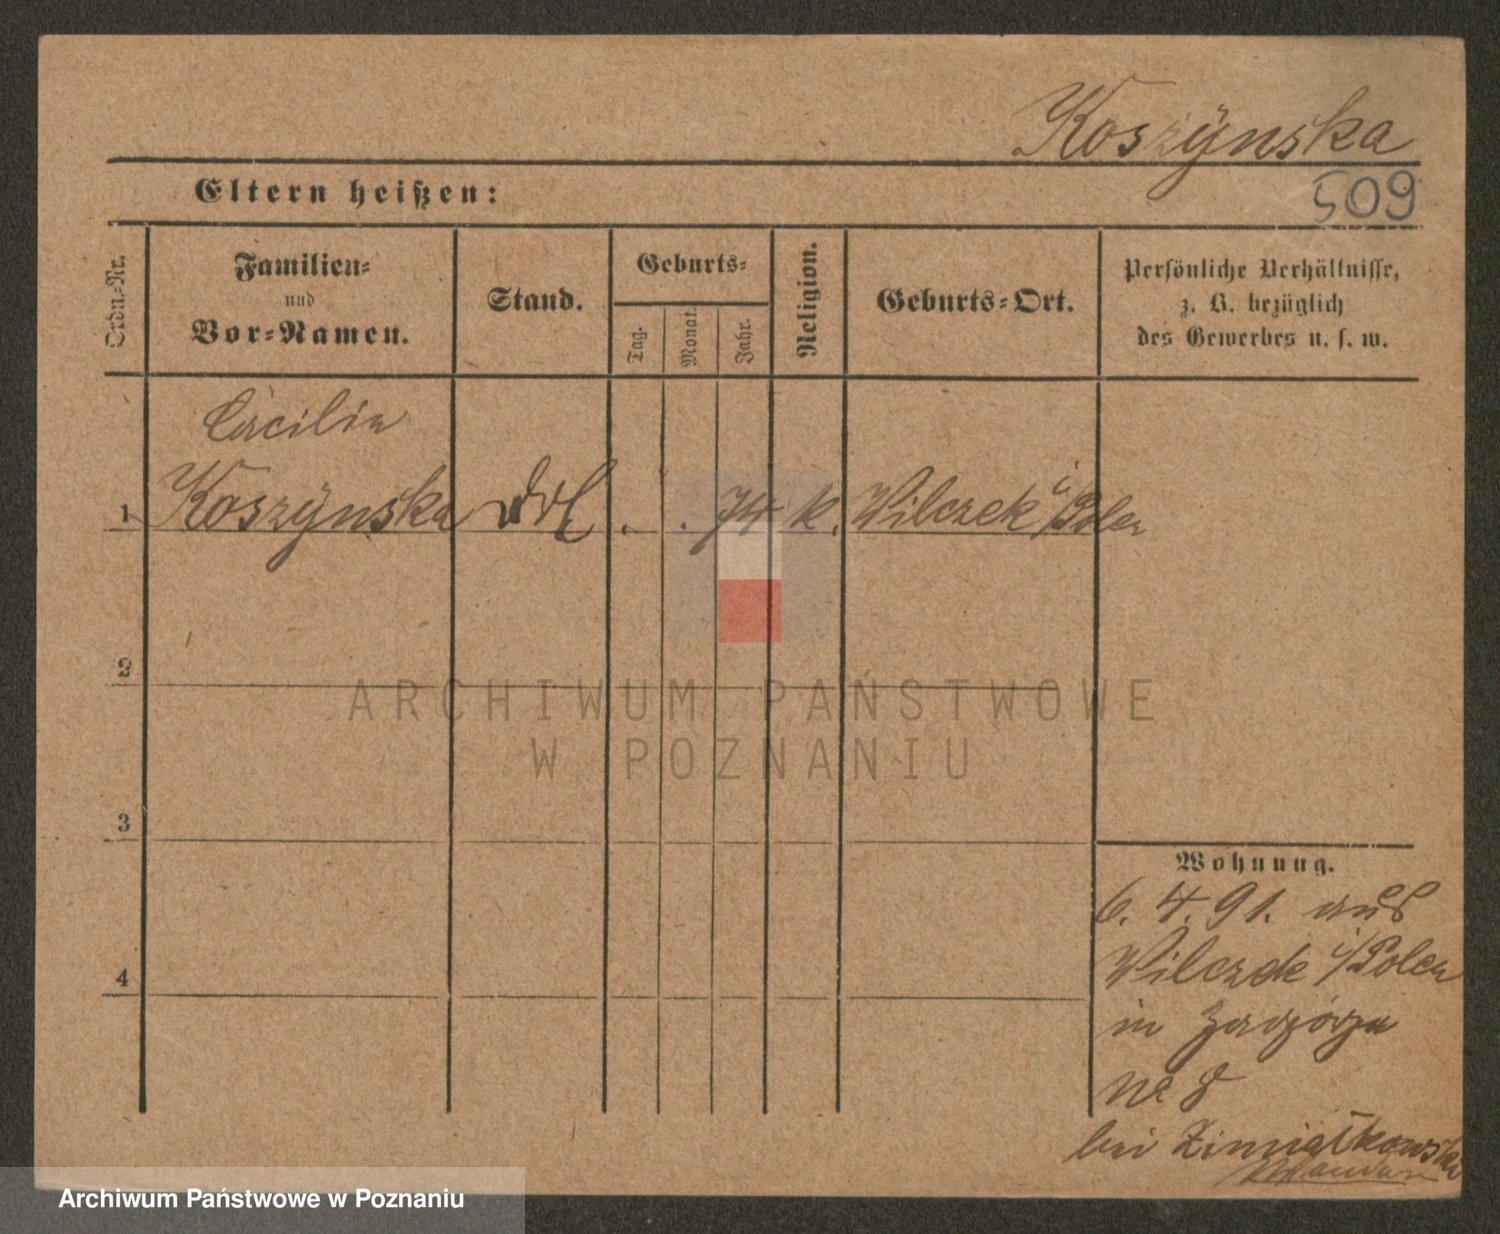 Koszÿnska
509
Eltern heißen:
Ordn.-Nr.
Familien-
und
Vor-Namen.
Stand.
Geburts-
Tag.
Monat.
Jahr.
Religion.
Geburts-Ort.
Persönliche Verhältnisse,
z. B. bezüglich
des Gewerbes u. s. w.
Cäcilia
1 Koszÿnska . . 74 k. Wilczek i/Polen
2
ARCHIWUM PAŃSTWOWE
W POZNANIU
3
Wohnung.
6. 4. 91. aus
Wilczek i/Polen
4
in Zagórze
No 8
bei Zimiałkowska
Archiwum Państwowe w Poznaniu